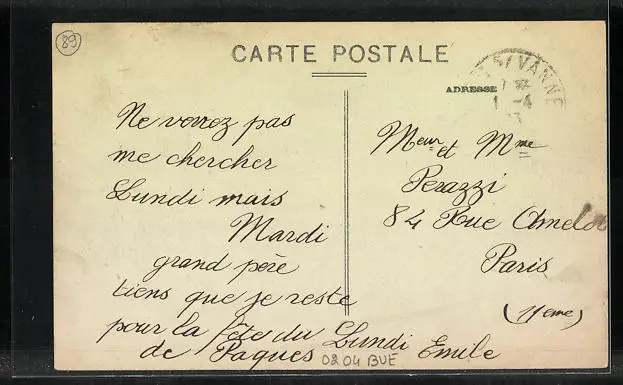 89
CARTE POSTALE
S/VANNE
ADRESSE
1 -4
Ne venez pas
me chercher
Lundi mais
Mardi
grand père
tiens que je reste
pour la fête du Lundi
de Paques Emile
Meur et Mme
Perazzi
84 Rue Amelot
Paris
(11eme)
0204 BUE